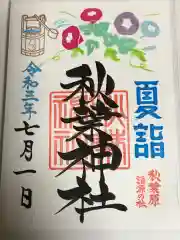 夏詣
秋葉原
秋葉神社
令和三年
七月一日